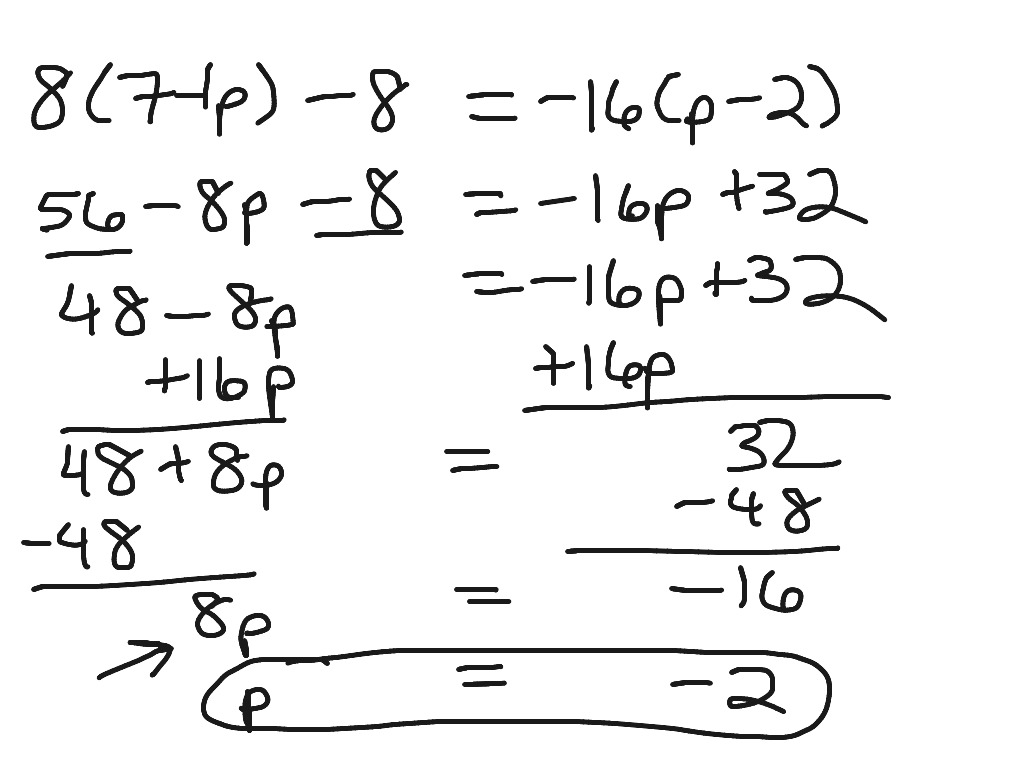 8(7-1p) - 8 = -16(p - 2)
56 - 8p - 8 = -16p + 32
48 - 8p = -16p + 32
+16p +16p
48 + 8p = 32
-48 -48
8p = -16
p = -2